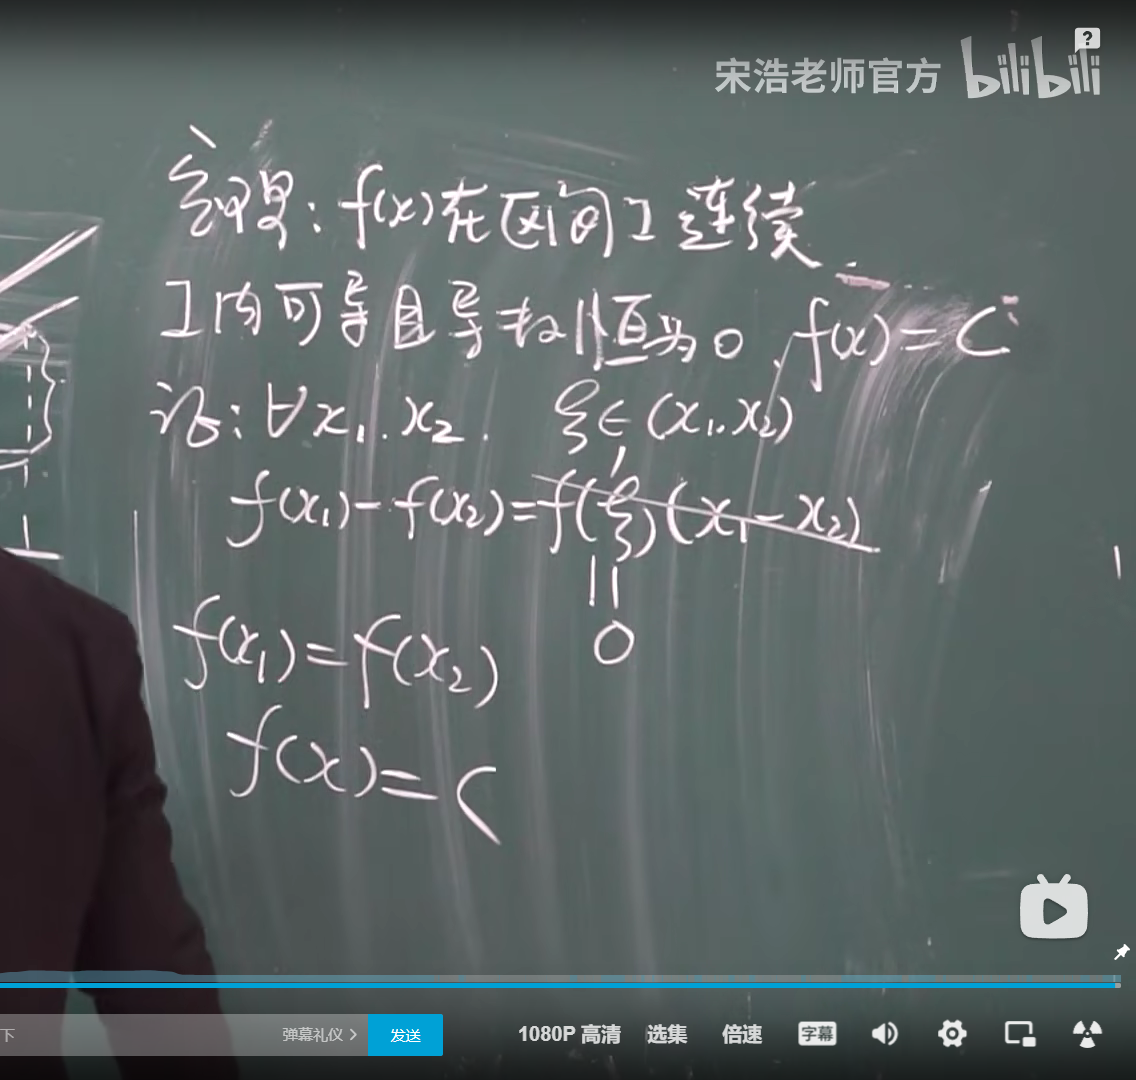 宋浩老师官方 bilibili
?
结果: f(x)在区间I连续.
I内可导且导数恒为0, f(x)=C
证: ∀x₁.x₂. ξ∈(x₁.x₂)
f(x₁)-f(x₂)=f'(ξ)(x₁-x₂)
||
0
f(x₁)=f(x₂)
f(x)=C
下 弹幕礼仪 > 发送 1080P 高清 选集 倍速 字幕